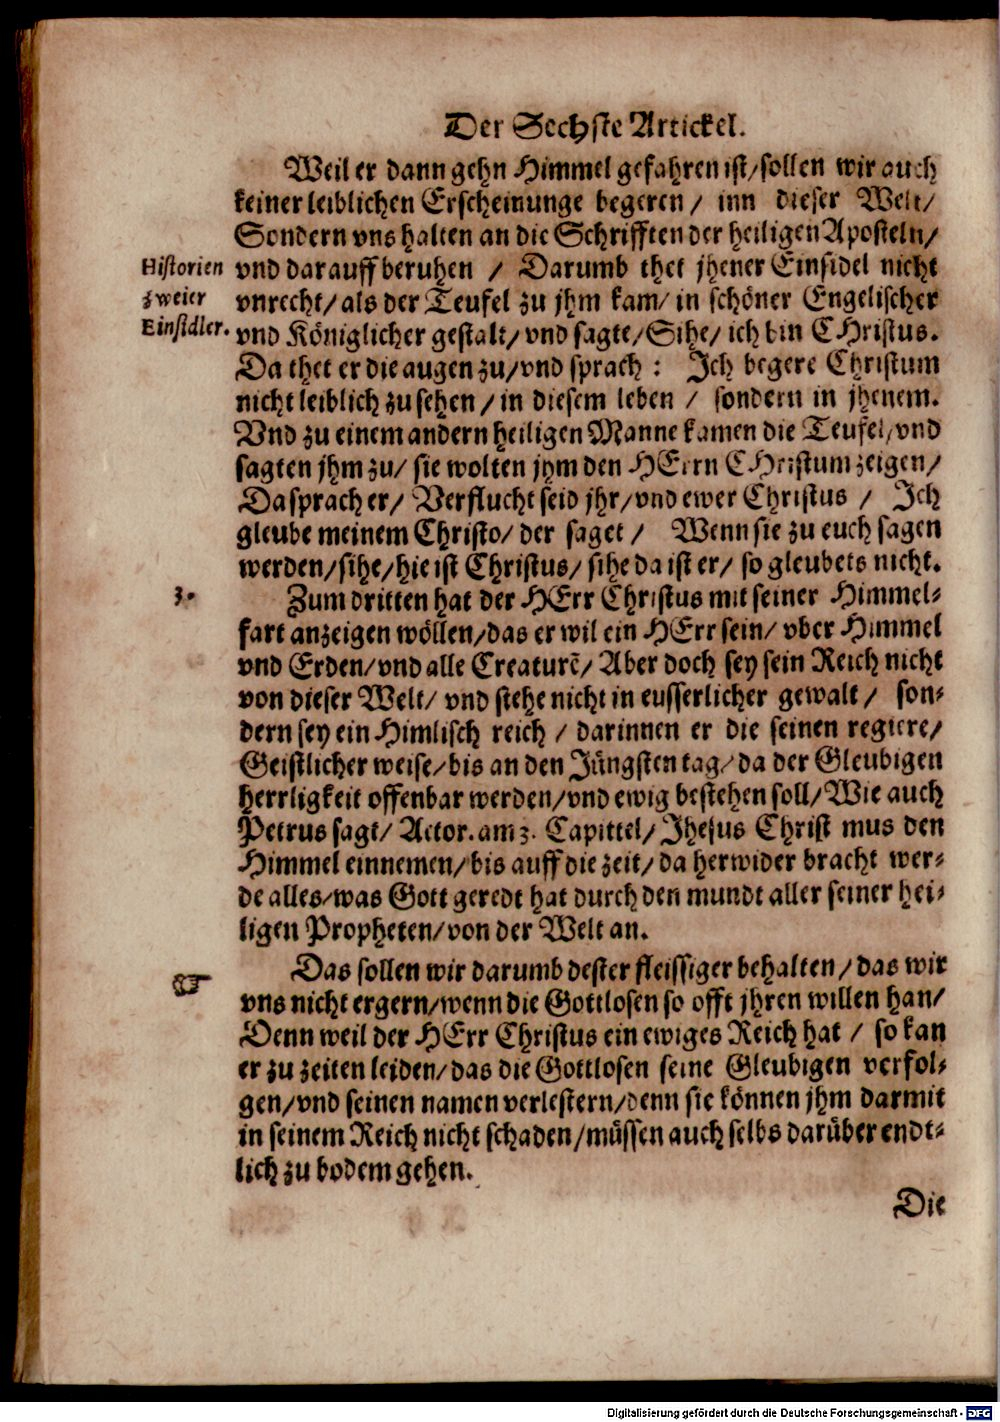 Der Sechste Artickel.
Weil er dann gehn Himmel gefahren ist/sollen wir auch
keiner leiblichen Erscheinunge begeren / inn dieser Welt/
Sondern vns halten an die Schrifften der heiligen Aposteln/
Historien
zweier
Einsidler.
vnd darauff beruhen / Darumb thet jhener Einsidel nicht
vnrecht/als der Teufel zu jhm kam/in schöner Engelischer
vnd Königlicher gestalt/vnd sagte/Sihe/ich bin CHristus.
Da thet er die augen zu/vnd sprach : Ich begere Christum
nicht leiblich zu sehen/in diesem leben / sondern in jhenem.
Vnd zu einem andern heiligen Manne kamen die Teufel/vnd
sagten jhm zu/ sie wolten jhm den HErrn CHristum zeigen/
Da sprach er/ Verflucht seid jhr/vnd ewer Christus / Ich
gleube meinem Christo/der saget / Wenn sie zu euch sagen
werden/sihe/hie ist Christus/sihe da ist er/ so gleubets nicht.
3.
Zum dritten hat der HErr Christus mit seiner Himmel-
fart anzeigen wöllen/das er wil ein HErr sein/ vber Himmel
vnd Erden/vnd alle Creaturẽ/ Aber doch sey sein Reich nicht
von dieser Welt/ vnd stehe nicht in eusserlicher gewalt / son-
dern sey ein Himlisch reich / darinnen er die seinen regiere/
Geistlicher weise/bis an den Jüngsten tag/da der Gleubigen
herrligkeit offenbar werden/vnd ewig bestehen soll/Wie auch
Petrus sagt/ Actor. am 3. Capittel/ Jhesus Christ mus den
Himmel einnemen/bis auff die zeit/da herwider bracht wer-
de alles/was Gott geredt hat durch den mundt aller seiner hei-
ligen Propheten/von der Welt an.
☞
Das sollen wir darumb dester fleissiger behalten/das wir
vns nicht ergern/wenn die Gottlosen so offt jhren willen han/
Denn weil der HErr Christus ein ewiges Reich hat / so kan
er zu zeiten leiden/das die Gottlosen seine Gleubigen verfol-
gen/vnd seinen namen verlestern/denn sie können jhm darmit
in seinem Reich nicht schaden/müssen auch selbs darüber endt-
lich zu bodem gehen.
Die
Digitalisierung gefördert durch die Deutsche Forschungsgemeinschaft - DFG